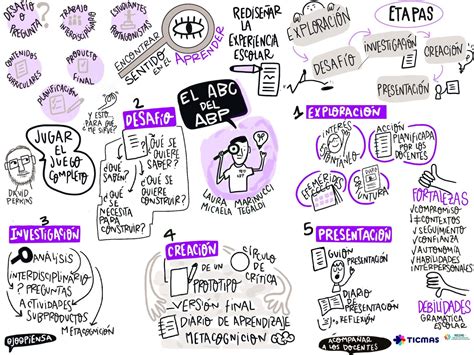 DESAFÍO
o
PREGUNTA?
TRABAJO
INTERDISCIPLINARIO
ESTUDIANTES
PROTAGONISTAS
CONTENIDOS
CURRICULARES
PRODUCTO
FINAL
PLANIFICACIÓN
ENCONTRAR
SENTIDO
EN EL
APRENDER
REDISEÑAR
LA
EXPERIENCIA
ESCOLAR
ETAPAS
EXPLORACIÓN
DESAFÍO
INVESTIGACIÓN
CREACIÓN
PRESENTACIÓN
Y ESTO...
PARA QUÉ
ME SIRVE?
JUGAR
EL
JUEGO
COMPLETO
DAVID
PERKINS
EL ABC
DEL
ABP
LAURA MARINUCCI
MICAELA TEGALDI
2
DESAFÍO
¿QUÉ
SABEN?
¿QUÉ
SE
NECESITA
PARA
CONSTRUIR?
¿QUÉ SE
QUIERE
SABER?
¿QUÉ
SE QUIERE
CONSTRUIR?
1 EXPLORACIÓN
INTERÉS
ESPONTÁNEO
ACCIÓN
PLANIFICADA
POR LOS
DOCENTES
EFEMÉRIDES
COYUNTURA
FORTALEZAS
COMPROMISO
≠CONTEXTOS
SEGUIMIENTO
CONFIANZA
AUTONOMÍA
HABILIDADES
INTERPERSONALES
DEBILIDADES
GRAMÁTICA
ESCOLAR
3
INVESTIGACIÓN
ANÁLISIS
INTERDISCIPLINARIO
? PREGUNTAS
ACTIVIDADES
SUBPRODUCTOS
METACOGNICIÓN
@JOOPIENSA
4
CREACIÓN
DE UN
PROTOTIPO
CÍRCULO
DE
CRÍTICA
VERSIÓN FINAL
DIARIO DE APRENDIZAJE
METACOGNICIÓN
5
PRESENTACIÓN
GUIÓN
PRESENTACIÓN
DIARIO
DE
PRESENTACIÓN
REFLEXIÓN
ACOMPAÑAR
A LOS DOCENTES
TICMAS